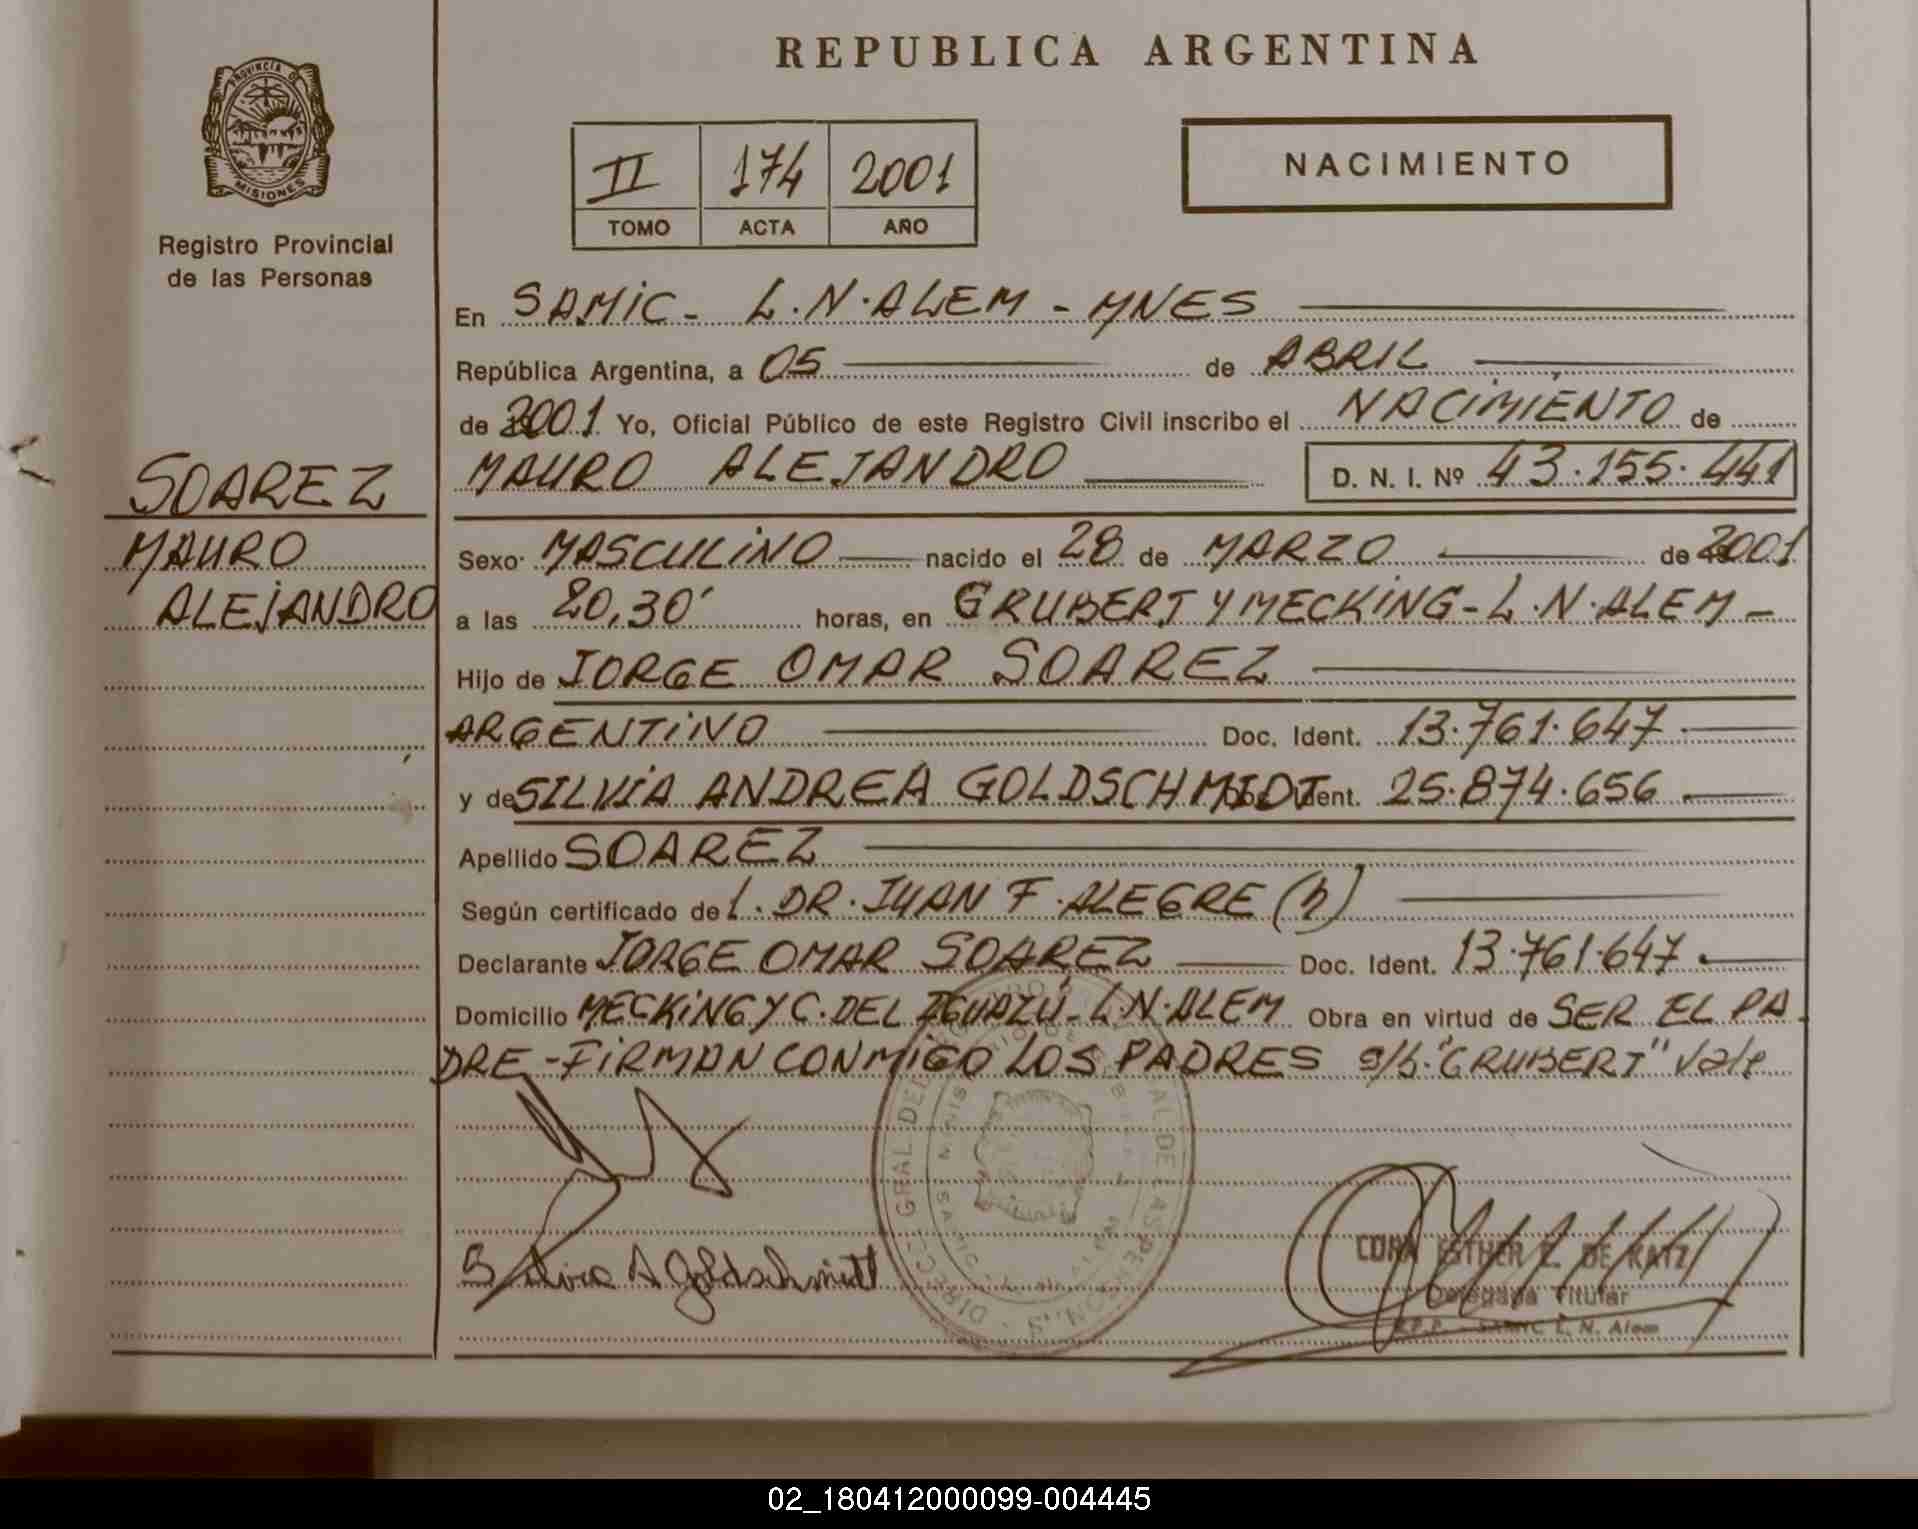 REPUBLICA ARGENTINA
PROVINCIA DE
MISIONES
Registro Provincial
de las Personas
II 174 2001
TOMO ACTA AÑO
NACIMIENTO
En SAMIC - L.N.ALEM - MNES
República Argentina, a 05 de ABRIL
de 2001 Yo, Oficial Público de este Registro Civil inscribo el NACIMIENTO de
MAURO ALEJANDRO D. N. I. Nº 43.155.441
SOAREZ
MAURO
ALEJANDRO
Sexo MASCULINO nacido el 28 de MARZO de 2001
a las 20,30' horas, en GRUBERT Y MECKING - L.N.ALEM -
Hijo de JORGE OMAR SOAREZ
ARGENTINO Doc. Ident. 13.761.647
y de SILVIA ANDREA GOLDSCHMIDT Doc. Ident. 25.874.656
Apellido SOAREZ
Según certificado del. DR. JUAN F. ALEGRE (h)
Declarante JORGE OMAR SOAREZ Doc. Ident. 13.761.647
Domicilio MECKING Y C. DEL IGUAZÚ - L.N.ALEM Obra en virtud de SER EL PA
DRE - FIRMAN CONMIGO LOS PADRES s/b. "GRUBERT" Vale
Silvia A Goldschmidt
ESTHER Z. DE KATZ
Delegada Titular
R.P.P. - SAMIC L. N. Alem
02_180412000099-004445